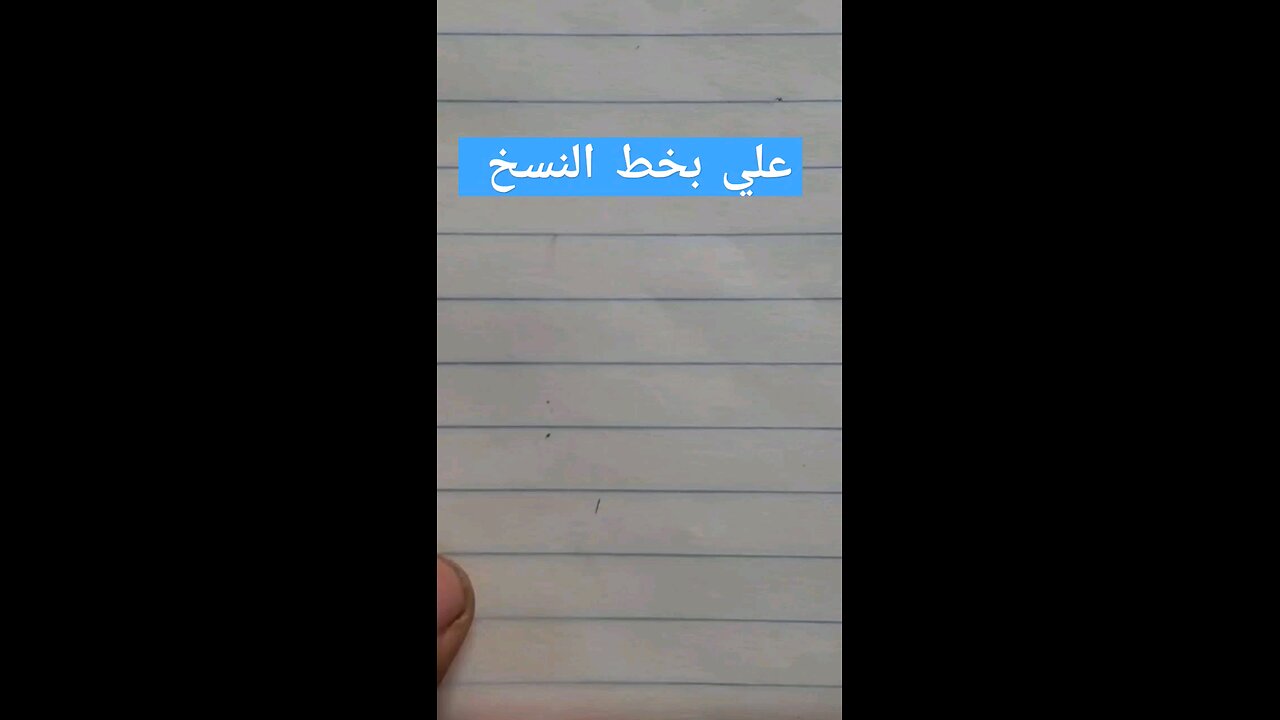 علي بخط النسخ